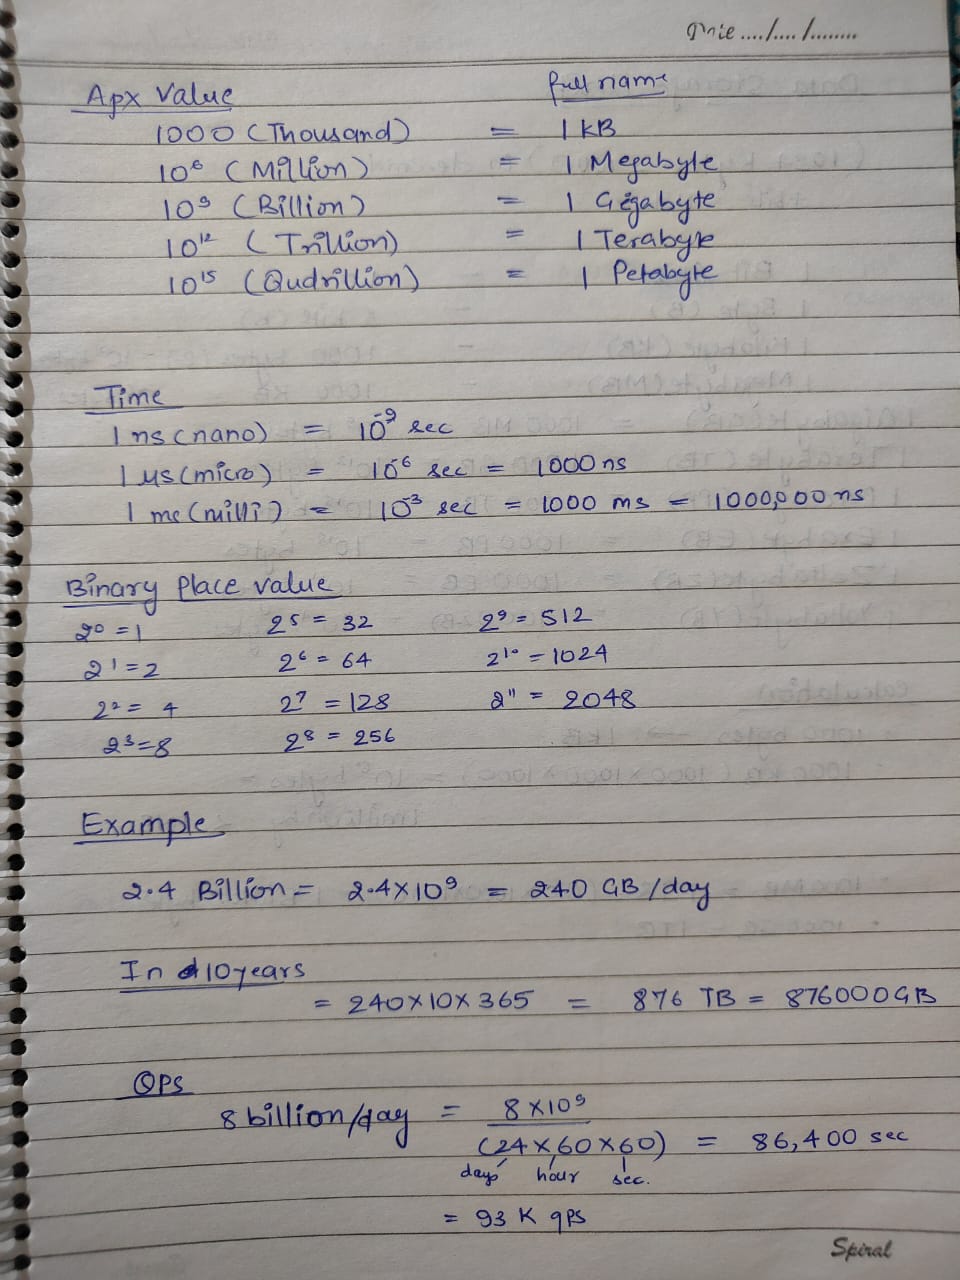 Apx Value full name
1000 (Thousand) = 1 KB
10⁶ (Million) = 1 Megabyte
10⁹ (Billion) = 1 Gigabyte
10¹² (Trillion) = 1 Terabyte
10¹⁵ (Qudrillion) = 1 Petabyte
Time
1 ns (nano) = 10⁻⁹ sec
1 µs (micro) = 10⁻⁶ sec = 1000 ns
1 ms (milli) = 10⁻³ sec = 1000 ms = 1000,000 ns
Binary Place value
2⁰ = 1 2⁵ = 32 2⁹ = 512
2¹ = 2 2⁶ = 64 2¹⁰ = 1024
2² = 4 2⁷ = 128 2¹¹ = 2048
2³ = 8 2⁸ = 256
Example
2.4 Billion = 2.4 × 10⁹ = 240 GB /day
In 10 years
= 240 × 10 × 365 = 876 TB = 876000 GB
QPS
8 billion/day = 8 × 10⁹
(24 × 60 × 60) = 86,400 sec
days hour sec.
= 93 K qps
Spiral